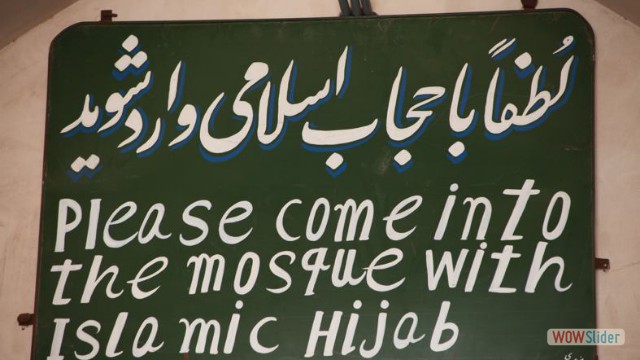 لطفاً با حجاب اسلامی وارد شوید
Please come into
the mosque with
Islamic Hijab
WOWSlider